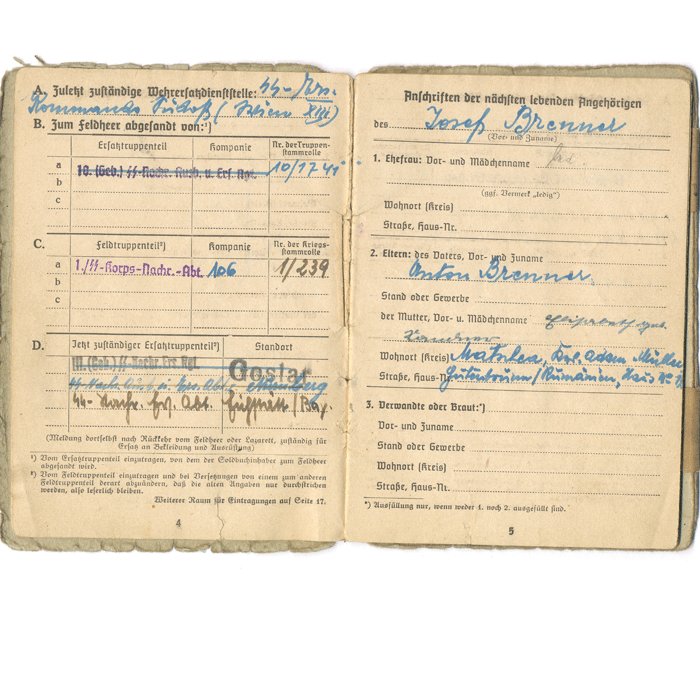 A. Zuletzt zuständige Wehrersatzdienststelle: SS-
Kommando Südost (Wien XIII)
B. Zum Feldheer abgesandt von:¹)
Ersatztruppenteil Kompanie Nr. der Truppen-
stammrolle
a 10. (Geb.) SS-Nachr. Ausb. u. Ers. Abt. 10/1741
b
c
C. Feldtruppenteil²) Kompanie Nr. der Kriegs-
stammrolle
a 1./SS-Korps-Nachr.-Abt. 106 1/239
b
c
D. Jetzt zuständiger Ersatztruppenteil²) Standort
(Geb.) SS Nachr. Ers. Abt. Goslar
SS-Nachr. Ausb. u. Ers. Abt. Nürnberg
SS-Nachr. Abt. Eichstätt/Bay.
(Meldung dortselbst nach Rückkehr vom Feldheer oder Lazarett, zuständig für
Ersatz an Bekleidung und Ausrüstung)
¹) Vom Ersatztruppenteil einzutragen, von dem der Soldbuchinhaber zum Feldheer
abgesandt wird.
²) Vom Feldtruppenteil einzutragen und bei Versetzungen von einem zum anderen
Feldtruppenteil derart abzuändern, daß die alten Angaben nur durchstrichen
werden, also leserlich bleiben.
Weiterer Raum für Eintragungen auf Seite 17.
4
Anschriften der nächsten lebenden Angehörigen
des Josef Brenner
(Vor- und Zuname)
1. Ehefrau: Vor- und Mädchenname
(ggf. Vermerk „ledig")
Wohnort (Kreis)
Straße, Haus-Nr.
2. Eltern: des Vaters, Vor- und Zuname
Anton Brenner
Stand oder Gewerbe
der Mutter, Vor- u. Mädchenname Elisabeth geb.
Wohnort (Kreis)
Straße, Haus-Nr. Gutenbrunn/Rumänien, Haus Nr.
3. Verwandte oder Braut:*)
Vor- und Zuname
Stand oder Gewerbe
Wohnort (Kreis)
Straße, Haus-Nr.
*) Ausfüllung nur, wenn weder 1. noch 2. ausgefüllt sind.
5